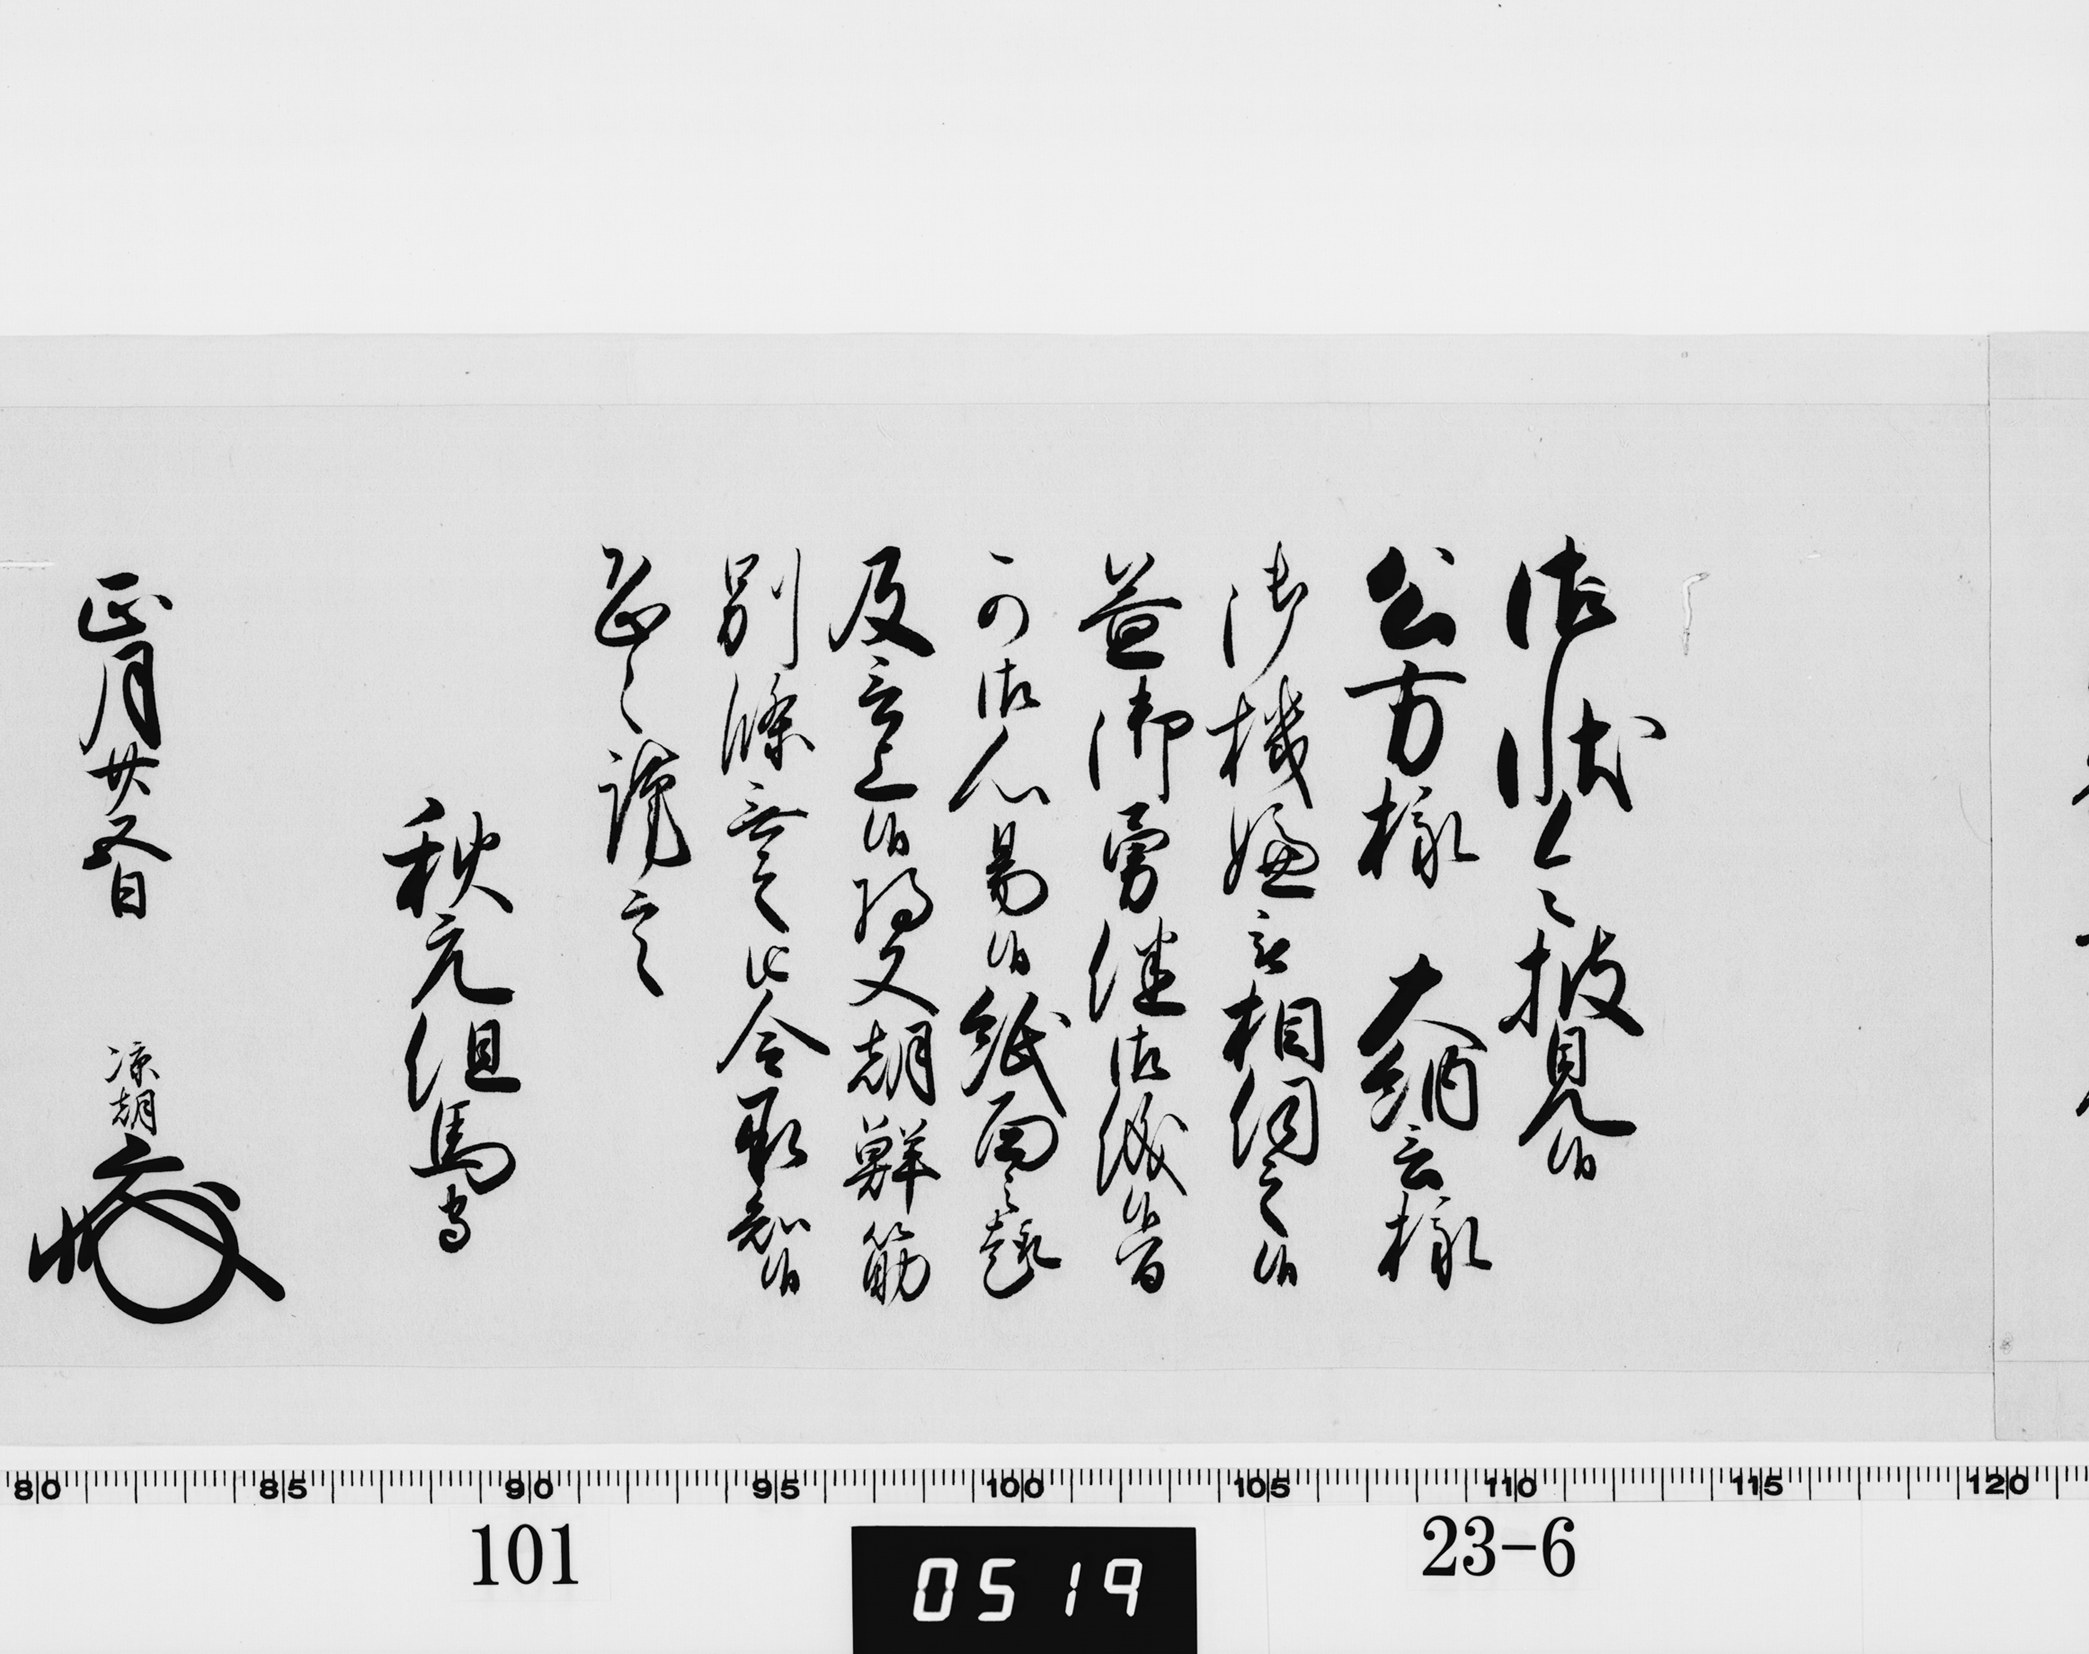 御状令披見候
公方様 大納言様
御機嫌被相伺之候
益御勇健御儀候間
可御心易候紙面之趣
及言上候将又朝鮮筋
別條無之 令承知候
恐々謹言
秋元但馬守
正月廿五日 凉朝
80 85 90 95 100 105 110 115 120
101 0519 23-6